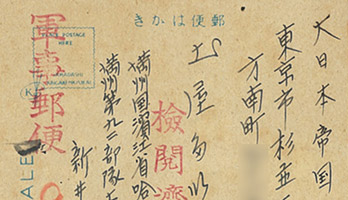 郵便はがき
大日本帝国
東京市杉並
方南町
土屋
検閲済
満州国濱江省哈
満州第九二部隊
新井
軍事郵便
POSTAGE
HERE
ALE